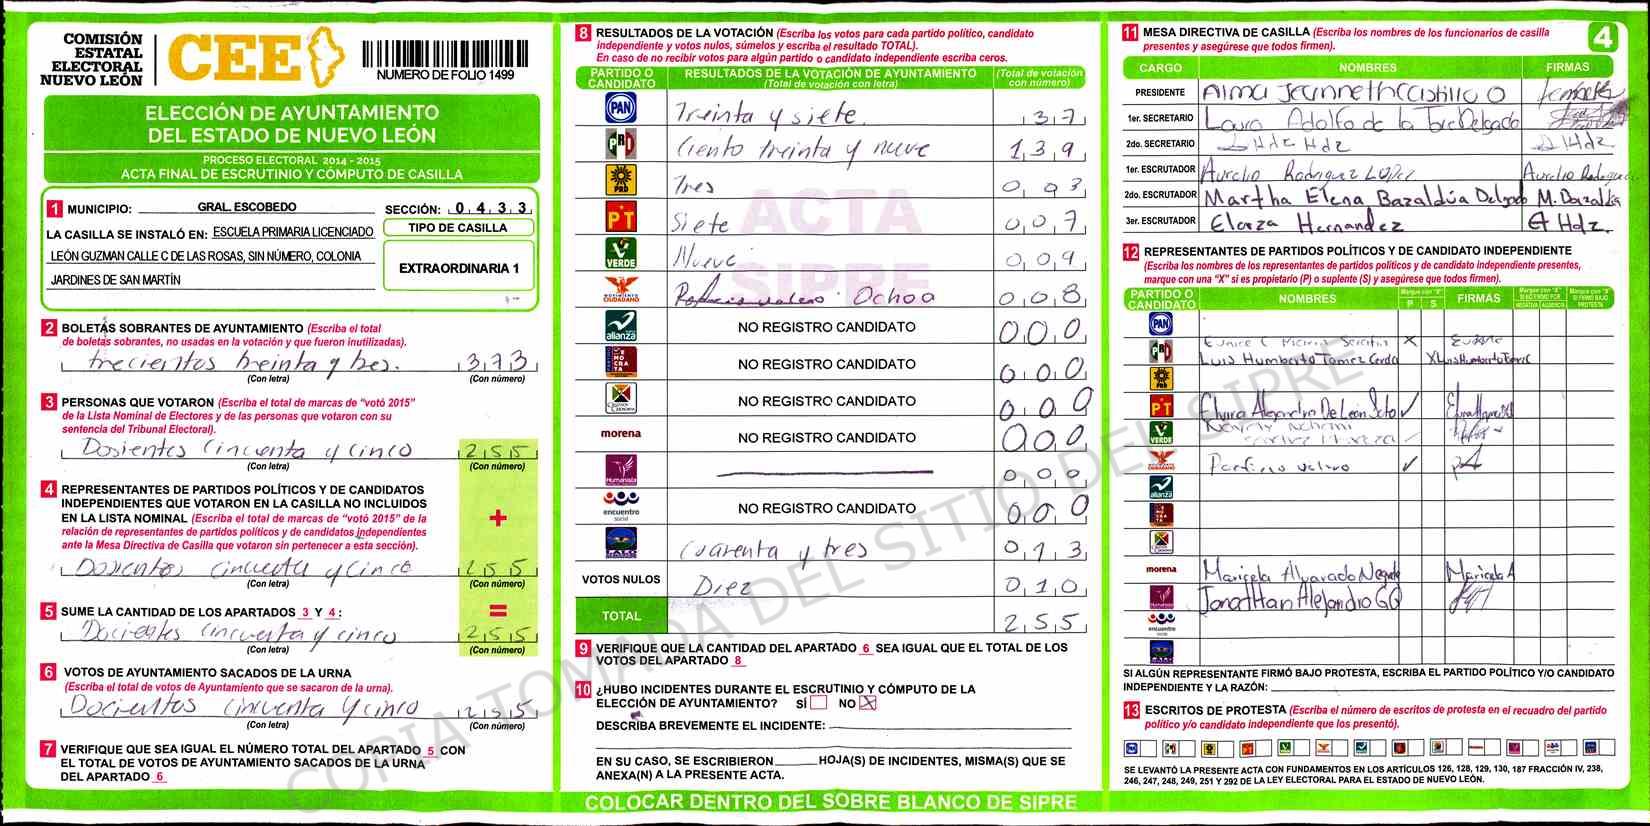 COMISIÓN
ESTATAL
ELECTORAL
NUEVO LEÓN
CEE
NUMERO DE FOLIO 1499
ELECCIÓN DE AYUNTAMIENTO
DEL ESTADO DE NUEVO LEÓN
PROCESO ELECTORAL 2014 - 2015
ACTA FINAL DE ESCRUTINIO Y CÓMPUTO DE CASILLA
1 MUNICIPIO: GRAL. ESCOBEDO SECCIÓN: 0 4 3 3
LA CASILLA SE INSTALÓ EN: ESCUELA PRIMARIA LICENCIADO
LEÓN GUZMAN CALLE C DE LAS ROSAS, SIN NÚMERO, COLONIA
JARDINES DE SAN MARTÍN
TIPO DE CASILLA
EXTRAORDINARIA 1
2 BOLETAS SOBRANTES DE AYUNTAMIENTO (Escriba el total
de boletas sobrantes, no usadas en la votación y que fueron inutilizadas).
trecientos treinta y tres. 373
(Con letra) (Con número)
3 PERSONAS QUE VOTARON (Escriba el total de marcas de “votó 2015”
de la Lista Nominal de Electores y de las personas que votaron con su
sentencia del Tribunal Electoral).
Dosientos cincuenta y cinco 255
(Con letra) (Con número)
4 REPRESENTANTES DE PARTIDOS POLÍTICOS Y DE CANDIDATOS
INDEPENDIENTES QUE VOTARON EN LA CASILLA NO INCLUIDOS
EN LA LISTA NOMINAL (Escriba el total de marcas de “votó 2015” de la
relación de representantes de partidos políticos y de candidatos independientes
ante la Mesa Directiva de Casilla que votaron sin pertenecer a esta sección).
+
Dosientos cincuenta y cinco 255
(Con letra) (Con número)
5 SUME LA CANTIDAD DE LOS APARTADOS 3 Y 4:
=
Docientos cincuenta y cinco 255
(Con letra) (Con número)
6 VOTOS DE AYUNTAMIENTO SACADOS DE LA URNA
(Escriba el total de votos de Ayuntamiento que se sacaron de la urna).
Docientos cincuenta y cinco 255
(Con letra) (Con número)
7 VERIFIQUE QUE SEA IGUAL EL NÚMERO TOTAL DEL APARTADO 5 CON
EL TOTAL DE VOTOS DE AYUNTAMIENTO SACADOS DE LA URNA
DEL APARTADO 6
8 RESULTADOS DE LA VOTACIÓN (Escriba los votos para cada partido político, candidato
independiente y votos nulos, súmelos y escriba el resultado TOTAL).
En caso de no recibir votos para algún partido o candidato independiente escriba ceros.
PARTIDO O CANDIDATO RESULTADOS DE LA VOTACIÓN DE AYUNTAMIENTO (Total de votación con letra) (Total de votación con número)
PAN Treinta y siete 37
PRD Ciento treinta y nueve 139
PRD Tres 003
PT Siete 007
VERDE Nueve 009
MOVIMIENTO CIUDADANO Ochoa 008
alianza NO REGISTRO CANDIDATO 000
DEMOCRATA NO REGISTRO CANDIDATO 000
NO REGISTRO CANDIDATO 000
morena NO REGISTRO CANDIDATO 000
Humanista 000
encuentro social NO REGISTRO CANDIDATO 000
Cuarenta y tres 013
VOTOS NULOS Diez 010
TOTAL 255
ACTA
SIPRE
9 VERIFIQUE QUE LA CANTIDAD DEL APARTADO 6 SEA IGUAL QUE EL TOTAL DE LOS
VOTOS DEL APARTADO 8
10 ¿HUBO INCIDENTES DURANTE EL ESCRUTINIO Y CÓMPUTO DE LA
ELECCIÓN DE AYUNTAMIENTO? SÍ NO X
DESCRIBA BREVEMENTE EL INCIDENTE:
EN SU CASO, SE ESCRIBIERON HOJA(S) DE INCIDENTES, MISMA(S) QUE SE
ANEXA(N) A LA PRESENTE ACTA.
COLOCAR DENTRO DEL SOBRE BLANCO DE SIPRE
COPIA TOMADA DEL SITIO DEL SIPRE
11 MESA DIRECTIVA DE CASILLA (Escriba los nombres de los funcionarios de casilla
presentes y asegúrese que todos firmen).
4
CARGO NOMBRES FIRMAS
PRESIDENTE Alma Jeanneth Castillo O
1er. SECRETARIO Lauro Adolfo de la Torre Delgado
2do. SECRETARIO Hdz Hdz
1er. ESCRUTADOR Aurelio Rodriguez Lopez Aurelio Rodriguez
2do. ESCRUTADOR Martha Elena Bazaldúa Delgado M. Bazaldúa
3er. ESCRUTADOR Eloiza Hernandez E Hdz.
12 REPRESENTANTES DE PARTIDOS POLÍTICOS Y DE CANDIDATO INDEPENDIENTE
(Escriba los nombres de los representantes de partidos políticos y de candidato independiente presentes,
marque con una “X” si es propietario (P) o suplente (S) y asegúrese que todos firmen).
PARTIDO O CANDIDATO NOMBRES Marque con “X” P S FIRMAS Marque con “X” SI NO FIRMÓ POR NEGATIVA AUSENCIA Marque con “X” SI FIRMÓ BAJO PROTESTA
PAN Eunice X
Luis Humberto Tamez Cerda X Luis Humberto Tamez
PRD
PT Elvira Alejandra De León Soto
VERDE
MOVIMIENTO CIUDADANO Porfirio Valero
alianza
morena Maricela Alvarado Negrete Maricela A
Humanista Jonathan Alejandro GQ
encuentro social
SI ALGÚN REPRESENTANTE FIRMÓ BAJO PROTESTA, ESCRIBA EL PARTIDO POLÍTICO Y/O CANDIDATO
INDEPENDIENTE Y LA RAZÓN:
13 ESCRITOS DE PROTESTA (Escriba el número de escritos de protesta en el recuadro del partido
político y/o candidato independiente que los presentó).
SE LEVANTÓ LA PRESENTE ACTA CON FUNDAMENTOS EN LOS ARTÍCULOS 126, 128, 129, 130, 187 FRACCIÓN IV, 238,
246, 247, 248, 249, 251 Y 292 DE LA LEY ELECTORAL PARA EL ESTADO DE NUEVO LEÓN.